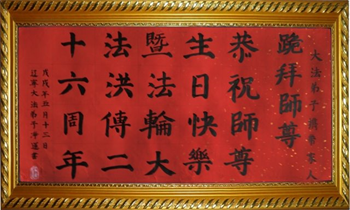 大法弟子 家人
跪拜師尊
恭祝師尊
生日快樂
暨法輪大
法洪傳二
十六周年
戊戌年五月十二日
大法弟子 書